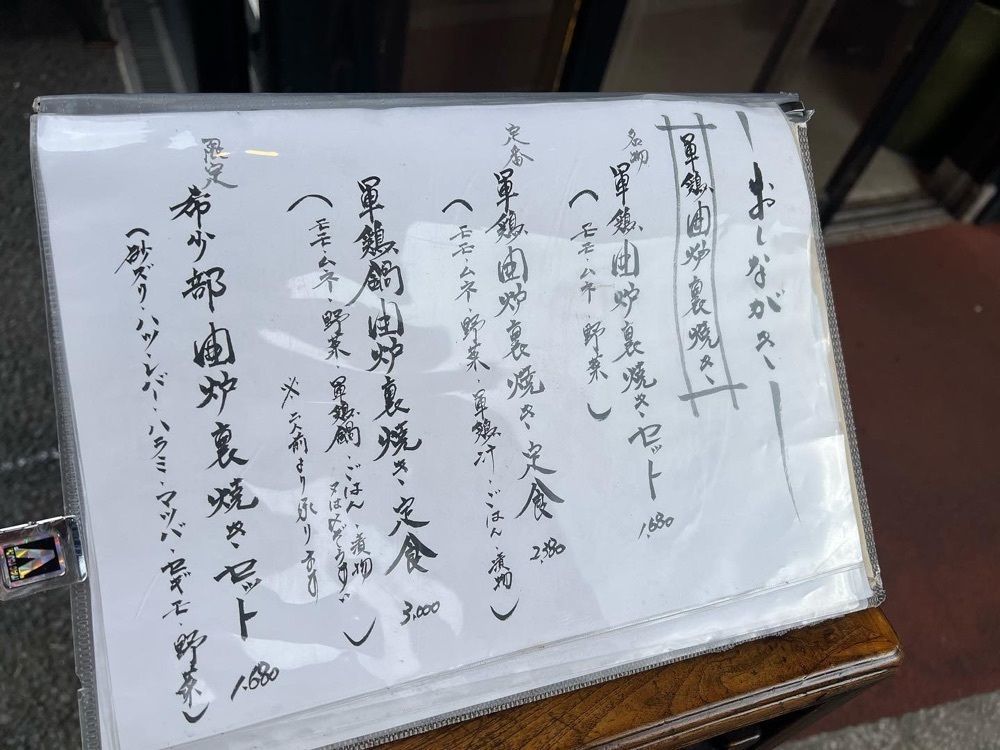 おしながき
軍鶏囲炉裏焼き
名物
軍鶏囲炉裏焼き セット 1,680
（モモ・ムネ・野菜）
定番
軍鶏囲炉裏焼き 定食 2,380
（モモ・ムネ・野菜・軍鶏汁・ごはん・漬物）
軍鶏鍋囲炉裏焼き 定食 3,000
（モモ・ムネ・野菜・軍鶏鍋・ごはん・漬物）
又はぞうすい
※二人前より承ります
限定
希少部囲炉裏焼き セット 1,680
（砂ズリ・ハツ・レバー・ハラミ・マツバ・セギモ・野菜）